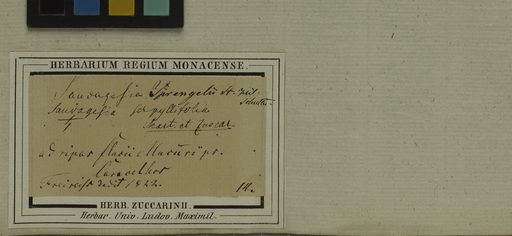 HERBARIUM REGIUM MONACENSE.
Sauvagesia Sprengelii St. Hil.
Sauvagesia serpyllifolia
Mart. et Zuccar.
ad ripas fluvii Mucuri pr.
Caravelhos
Freireiss dedit 1822.
HERB. ZUCCARINII.
Herbar. Univ. Ludov. Maximil.